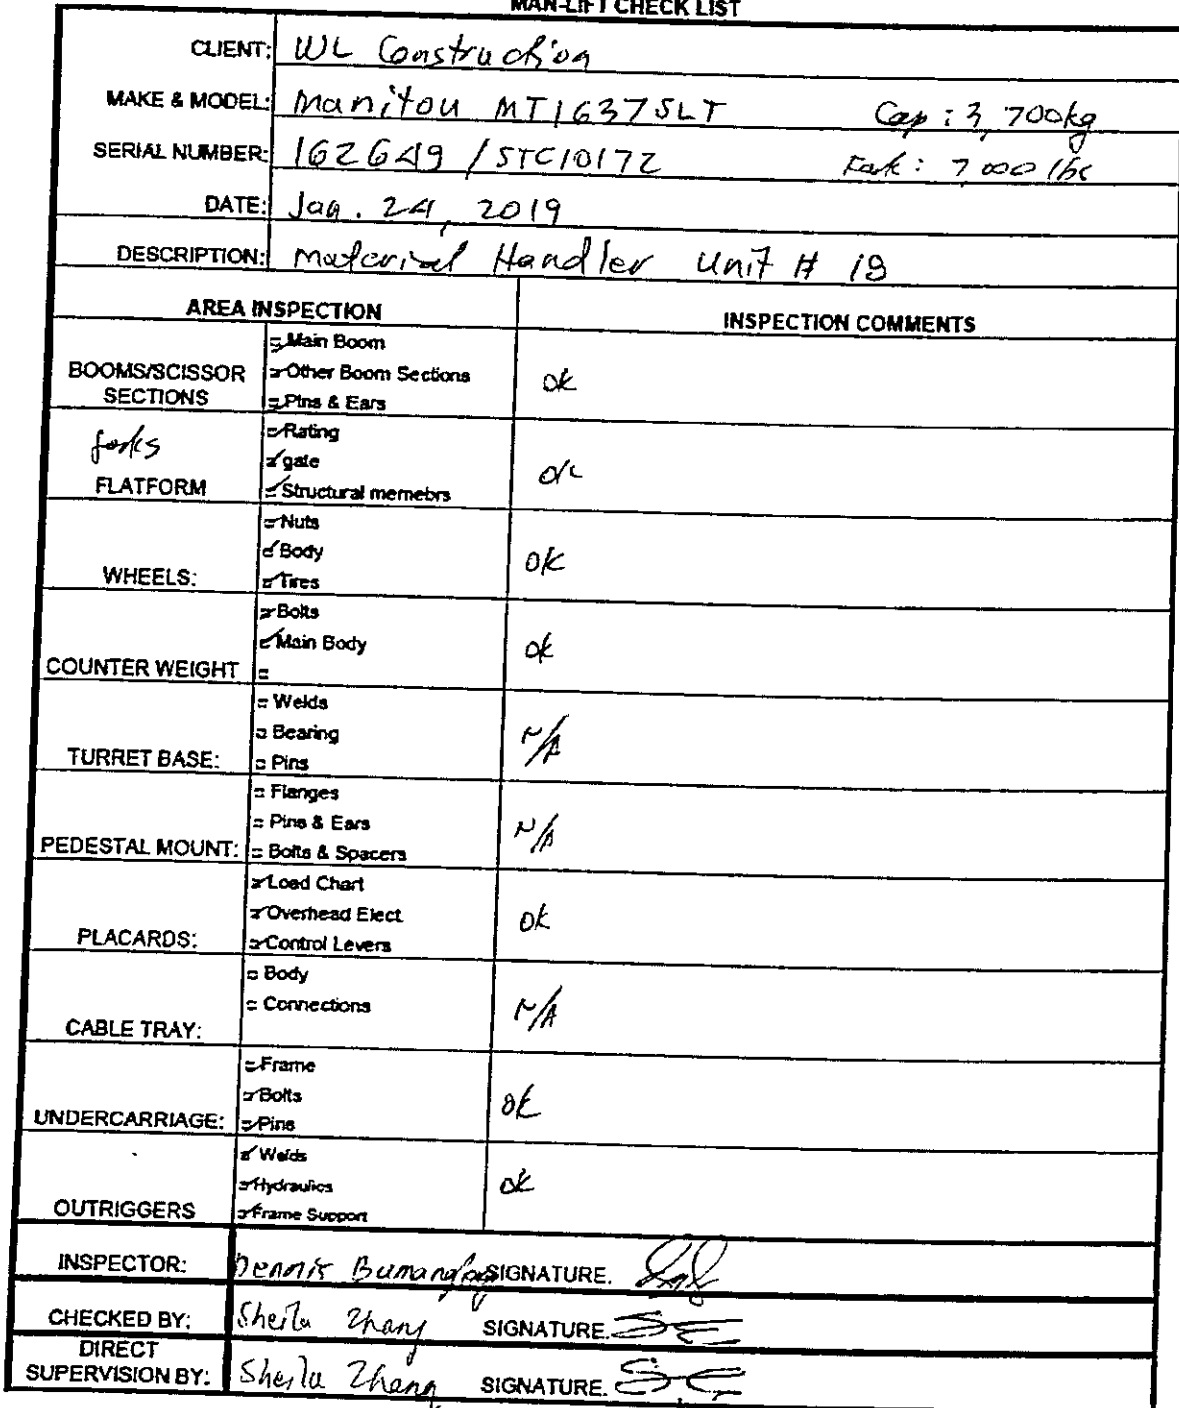 MAN-LIFT CHECK LIST
CLIENT: WL Construction
MAKE & MODEL: Manitou MT1637SLT Cap: 3,700kg
SERIAL NUMBER: 162649 / STC10172 Fork: 7,000 lbs
DATE: Jan. 24, 2019
DESCRIPTION: Material Handler Unit # 18
AREA INSPECTION INSPECTION COMMENTS
BOOMS/SCISSOR SECTIONS
Main Boom
Other Boom Sections
Pins & Ears
ok
forks
FLATFORM
Rating
gate
Structural memebrs
ok
WHEELS:
Nuts
Body
Tires
ok
COUNTER WEIGHT
Bolts
Main Body
ok
TURRET BASE:
Welds
Bearing
Pins
N/A
PEDESTAL MOUNT:
Flanges
Pins & Ears
Bolts & Spacers
N/A
PLACARDS:
Load Chart
Overhead Elect.
Control Levers
ok
CABLE TRAY:
Body
Connections
N/A
UNDERCARRIAGE:
Frame
Bolts
Pins
ok
OUTRIGGERS
Welds
Hydraulics
Frame Support
ok
INSPECTOR: Dennis SIGNATURE.
CHECKED BY: Sheila Zhang SIGNATURE.
DIRECT
SUPERVISION BY: Sheila Zhang SIGNATURE.